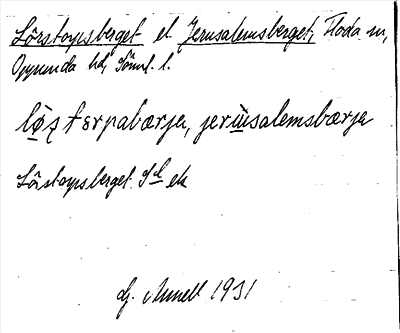 Lörstorpsberget el Jerusalemsberget, Floda sn,
Oppunda hd, Söml. l.
lö̱ʂtərpabærja, jerùsalemsbærja
Lörstorpsberget Sd ek
G. Annell 1931